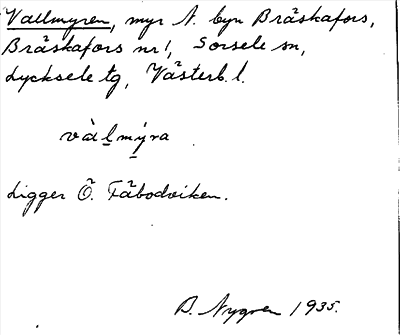 Vallmyren, myr N. byn Bräskafors,
Bräskafors nr 1, Sorsele sn,
Lycksele tg, Västerb. l.
vàl̲mýra
Ligger Ö. Fäbodviken.
B. Nygren 1935.